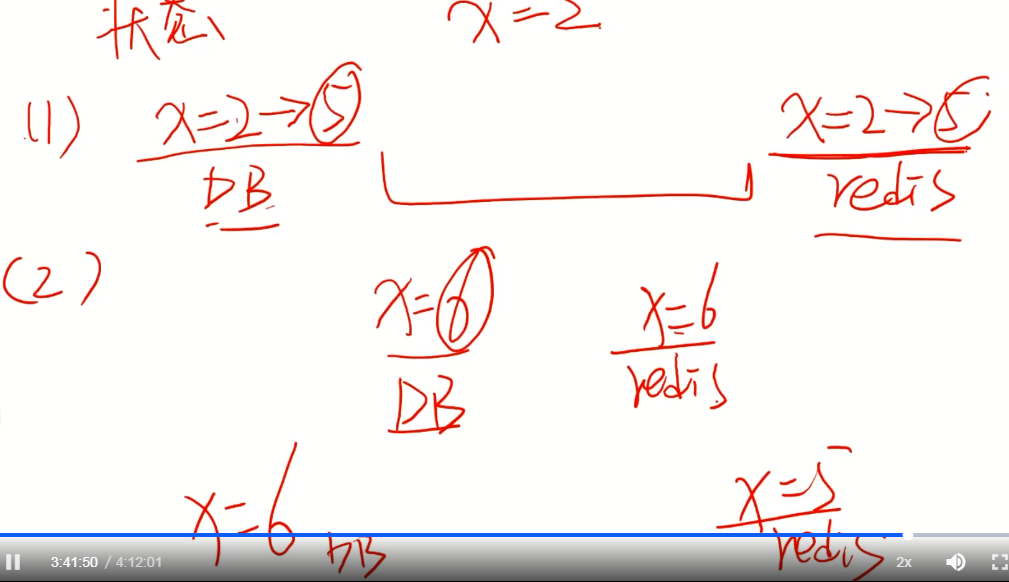 状态、 x=2
(1) x=2→5 x=2→5
DB redis
(2) x=6 x=6
DB redis
x=6 DB x=5
redis
3:41:50 / 4:12:01 2x